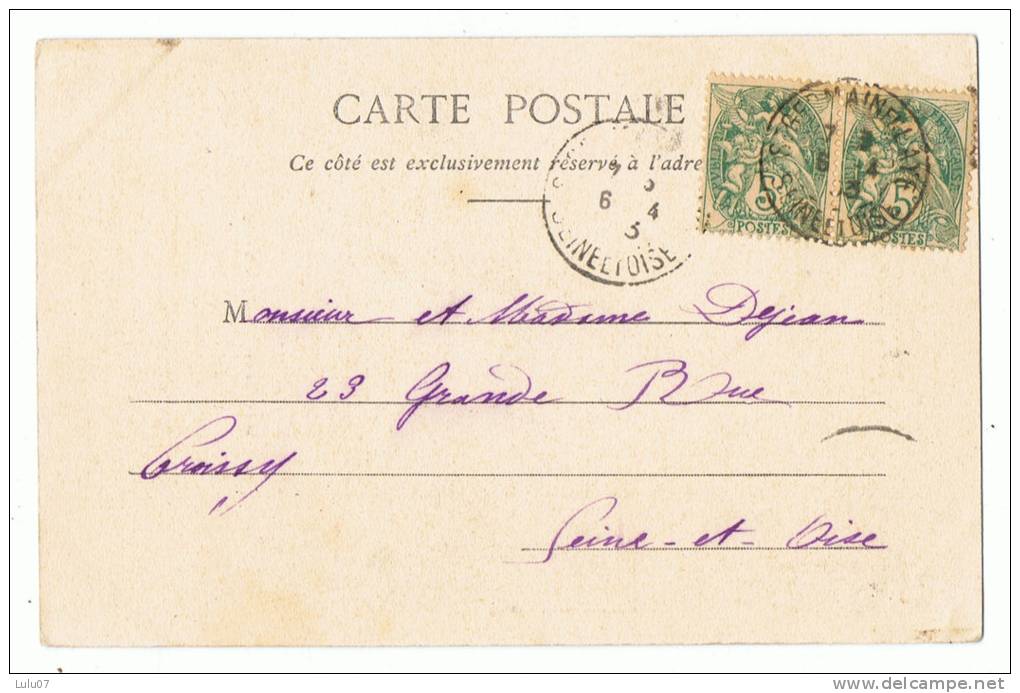 CARTE POSTALE
Ce côté est exclusivement réservé à l'adre
6 4
SEINE ET OISE
5
POSTES
5
POSTES
SEINE ET OISE
Monsieur et Madame Dejean
23 Grande Rue
Croissy
Seine-et-Oise
Lulu07
www.delcampe.net